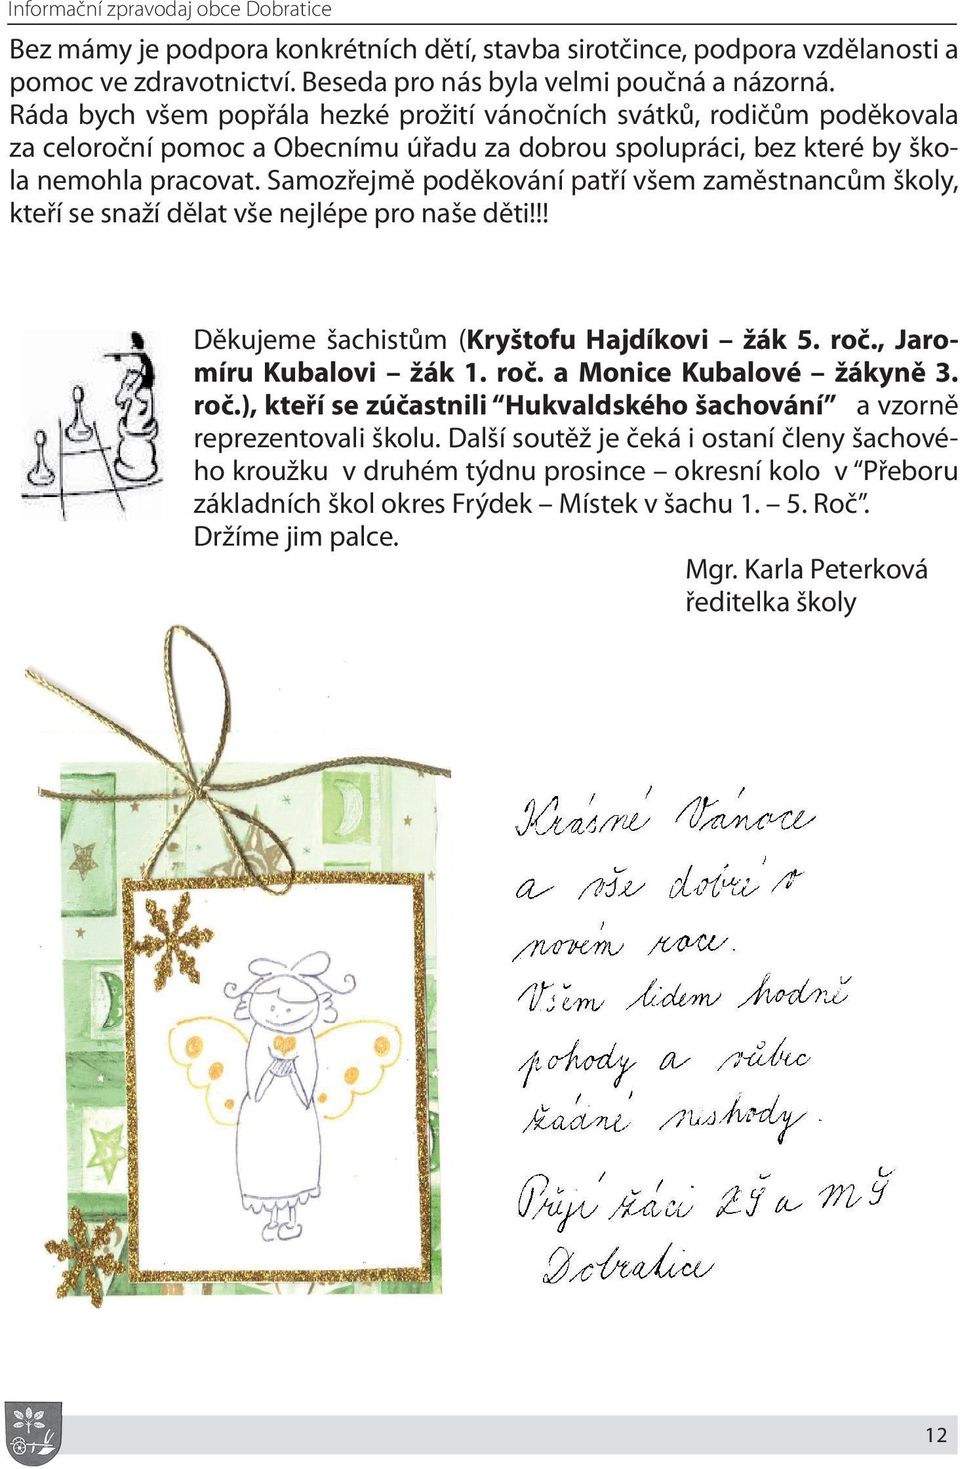 Informační zpravodaj obce Dobratice
Bez mámy je podpora konkrétních dětí, stavba sirotčince, podpora vzdělanosti a
pomoc ve zdravotnictví. Beseda pro nás byla velmi poučná a názorná.
Ráda bych všem popřála hezké prožití vánočních svátků, rodičům poděkovala
za celoroční pomoc a Obecnímu úřadu za dobrou spolupráci, bez které by ško-
la nemohla pracovat. Samozřejmě poděkování patří všem zaměstnancům školy,
kteří se snaží dělat vše nejlépe pro naše děti!!!
Děkujeme šachistům (Kryštofu Hajdíkovi – žák 5. roč., Jaro-
míru Kubalovi – žák 1. roč. a Monice Kubalové – žákyně 3.
roč.), kteří se zúčastnili “Hukvaldského šachování” a vzorně
reprezentovali školu. Další soutěž je čeká i ostaní členy šachové-
ho kroužku v druhém týdnu prosince – okresní kolo v “Přeboru
základních škol okres Frýdek – Místek v šachu 1. – 5. Roč”.
Držíme jim palce.
Mgr. Karla Peterková
ředitelka školy
Krásné Vánoce
a vše dobré v
novém roce.
Všem lidem hodně
pohody a vůbec
žádné neshody.
Přejí žáci ZŠ a MŠ
Dobratice
12